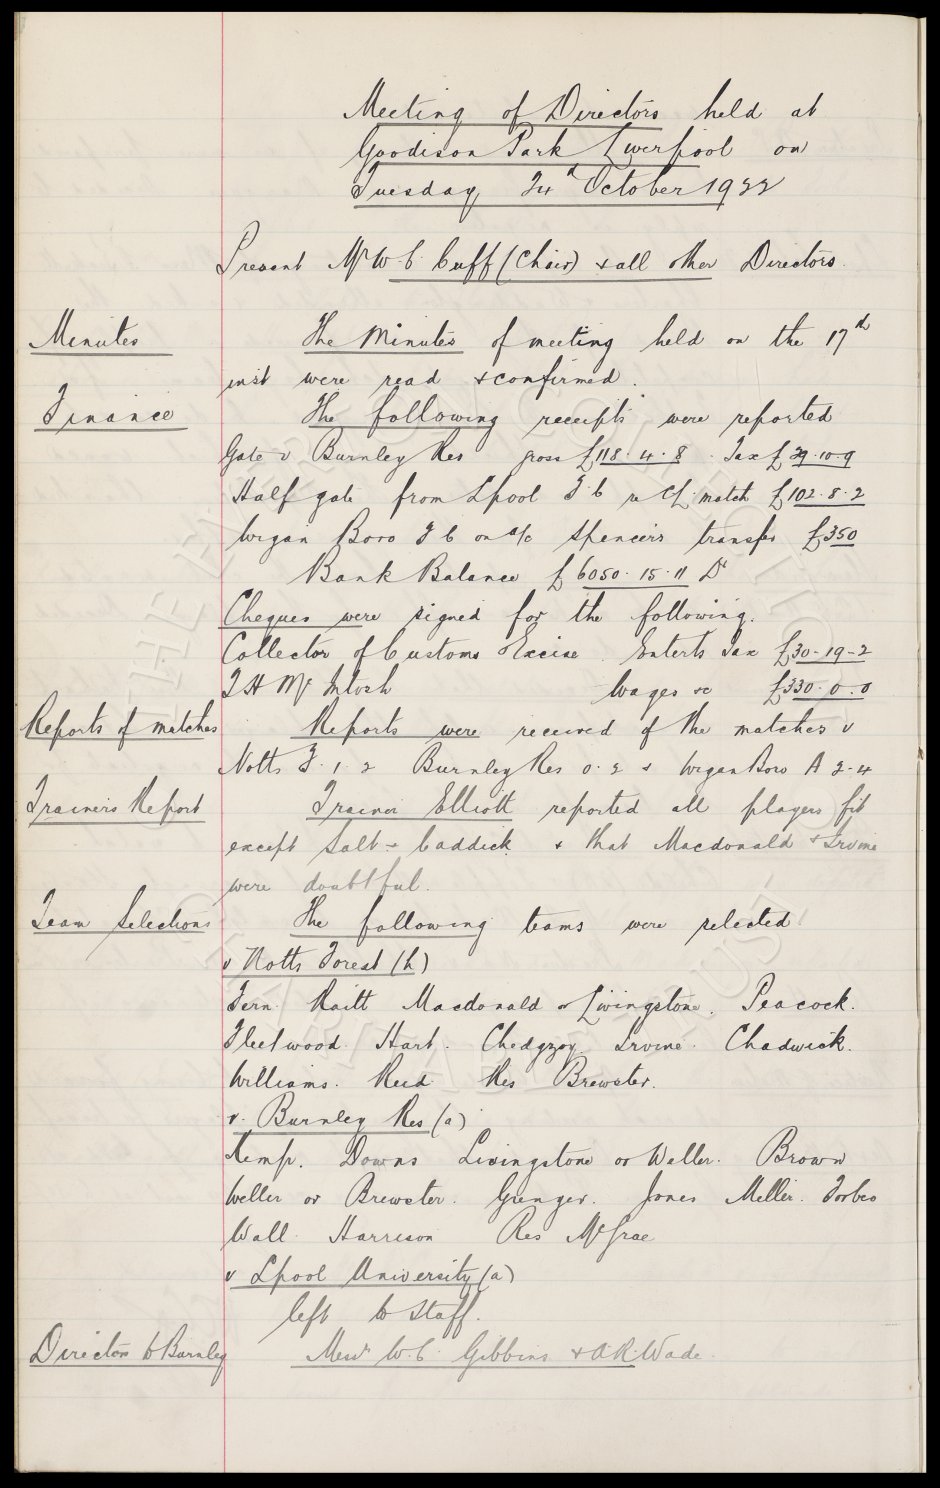 Meeting of Directors held at
Goodison Park Liverpool on
Tuesday 24th October 1922
Present Mr W.C. Cuff (Chair) & all other Directors.
Minutes The Minutes of meeting held on the 17th
inst were read & confirmed.
Finance The following receipts were reported
Gate v Burnley Res gross £118.4.8. Tax £29.10.9
Half gate from Lpool F.C re C/L match £102.8.2
Wigan Boro F C on a/c Spencer's transfer £350
Bank Balance £6050.15.11 Dr
Cheques were signed for the following.
Collector of Customs & Excise. Enterts Tax £30-19-2
T H McIntosh Wages &c £330.0.0
Reports of matches Reports were received of the matches v
Notts F. 1.2 Burnley Res 0.2 & Wigan Boro A 2-4
Trainer's Report Trainer Elliott reported all players fit
except Salt & Caddick. & that Macdonald & Irvine
were doubtful.
Team Selections The following teams were selected
v Notts Forest (h)
Fern. Raitt Macdonald or Livingstone. Peacock.
Fleetwood. Hart. Chedgzoy. Irvine. Chadwick.
Williams. Reid. Res Brewster.
v. Burnley Res (a)
Kemp. Downs Livingstone or Weller. Brown
Weller or Brewster. Grenyer. Jones Miller. Forbes
Wall. Harrison Res McGrae
v Lpool University (a)
left to Staff.
Directors to Burnley Messrs W.C. Gibbins & A.R. Wade.